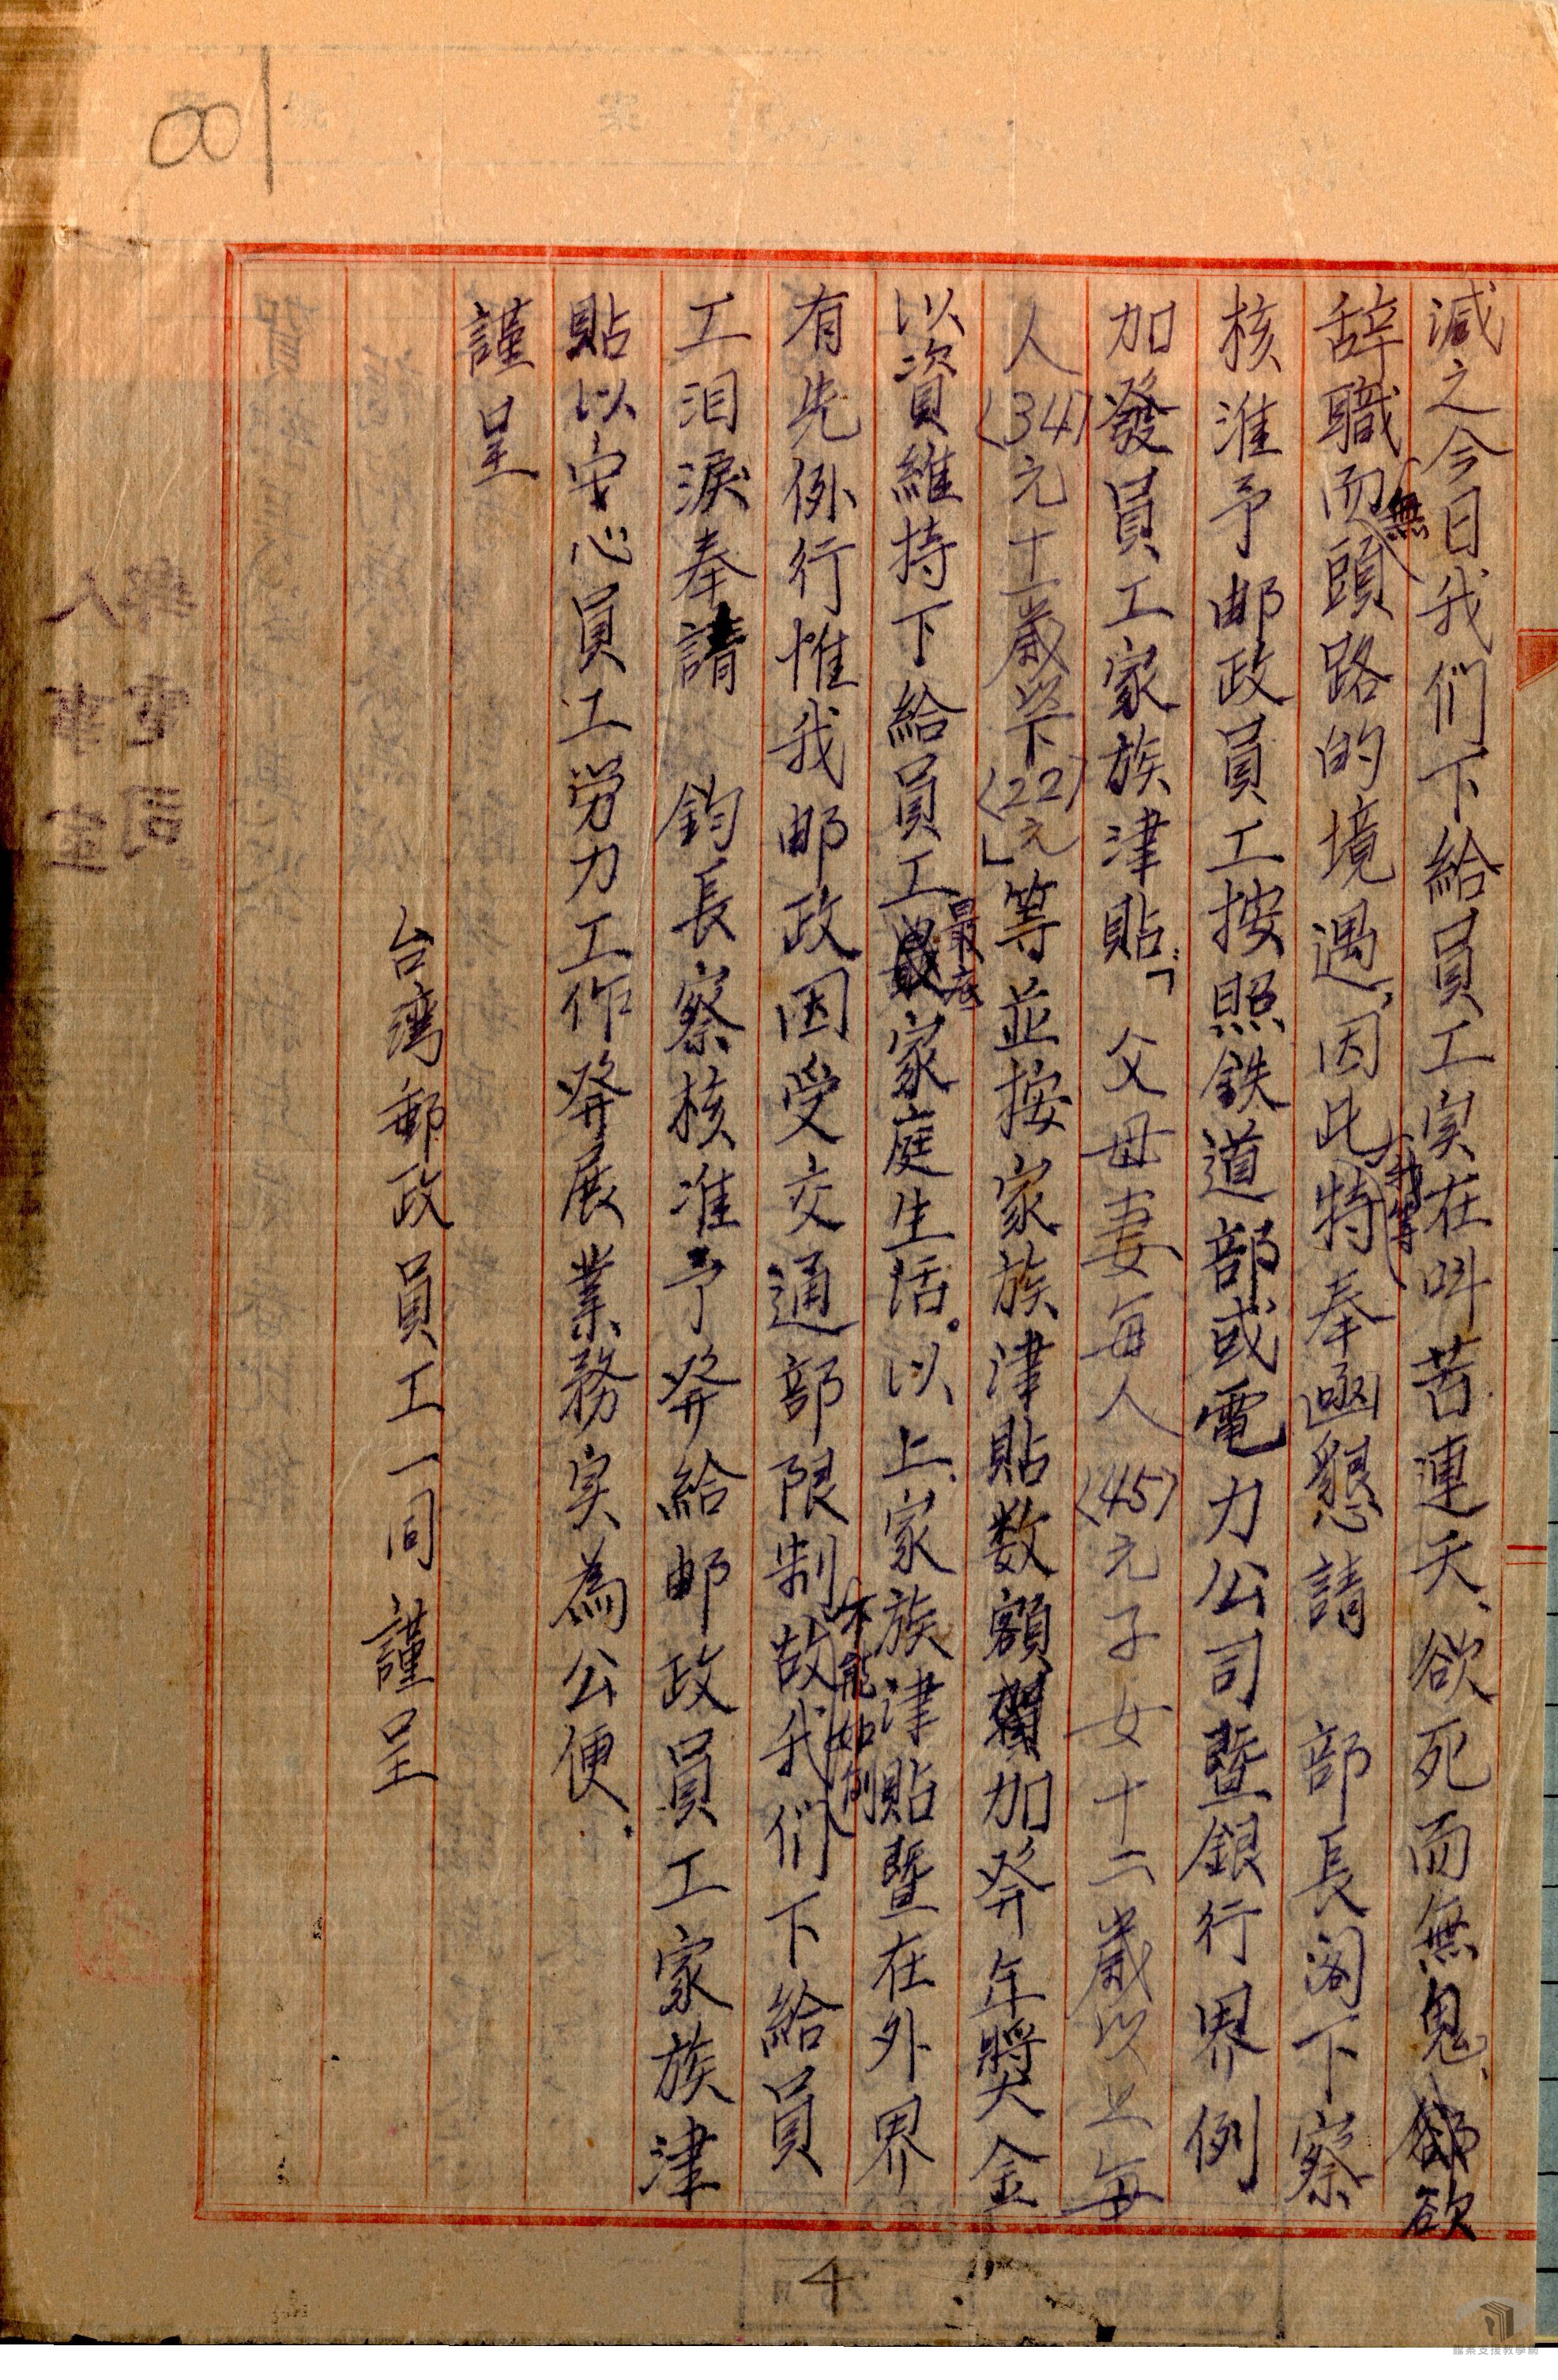 減之今日我们下給員工実在叫苦連天、欲死而無鬼、欲
辞職而無頭路的境遇、因此我等特奉函懇請 部長阁下察
核准予邮政員工按照鉄道部或電力公司暨銀行界例
加發員工家族津貼「父母妻每人(45)元子女十二歲以上每
人(34)元十一歲以下(22)元」等並按家族津貼数額加発年奬金
以資維持下給員工最底家庭生活。以上家族津貼暨在外界
有先例行惟我邮政因受交通部限制不能如例故我们下給員
工泪淚奉請 鈞長察核准予発給邮政員工家族津
貼以安心員工労力工作発展業務実為公便.
謹呈
台灣郵政員工一同謹呈
001
4
檔案支援教學網